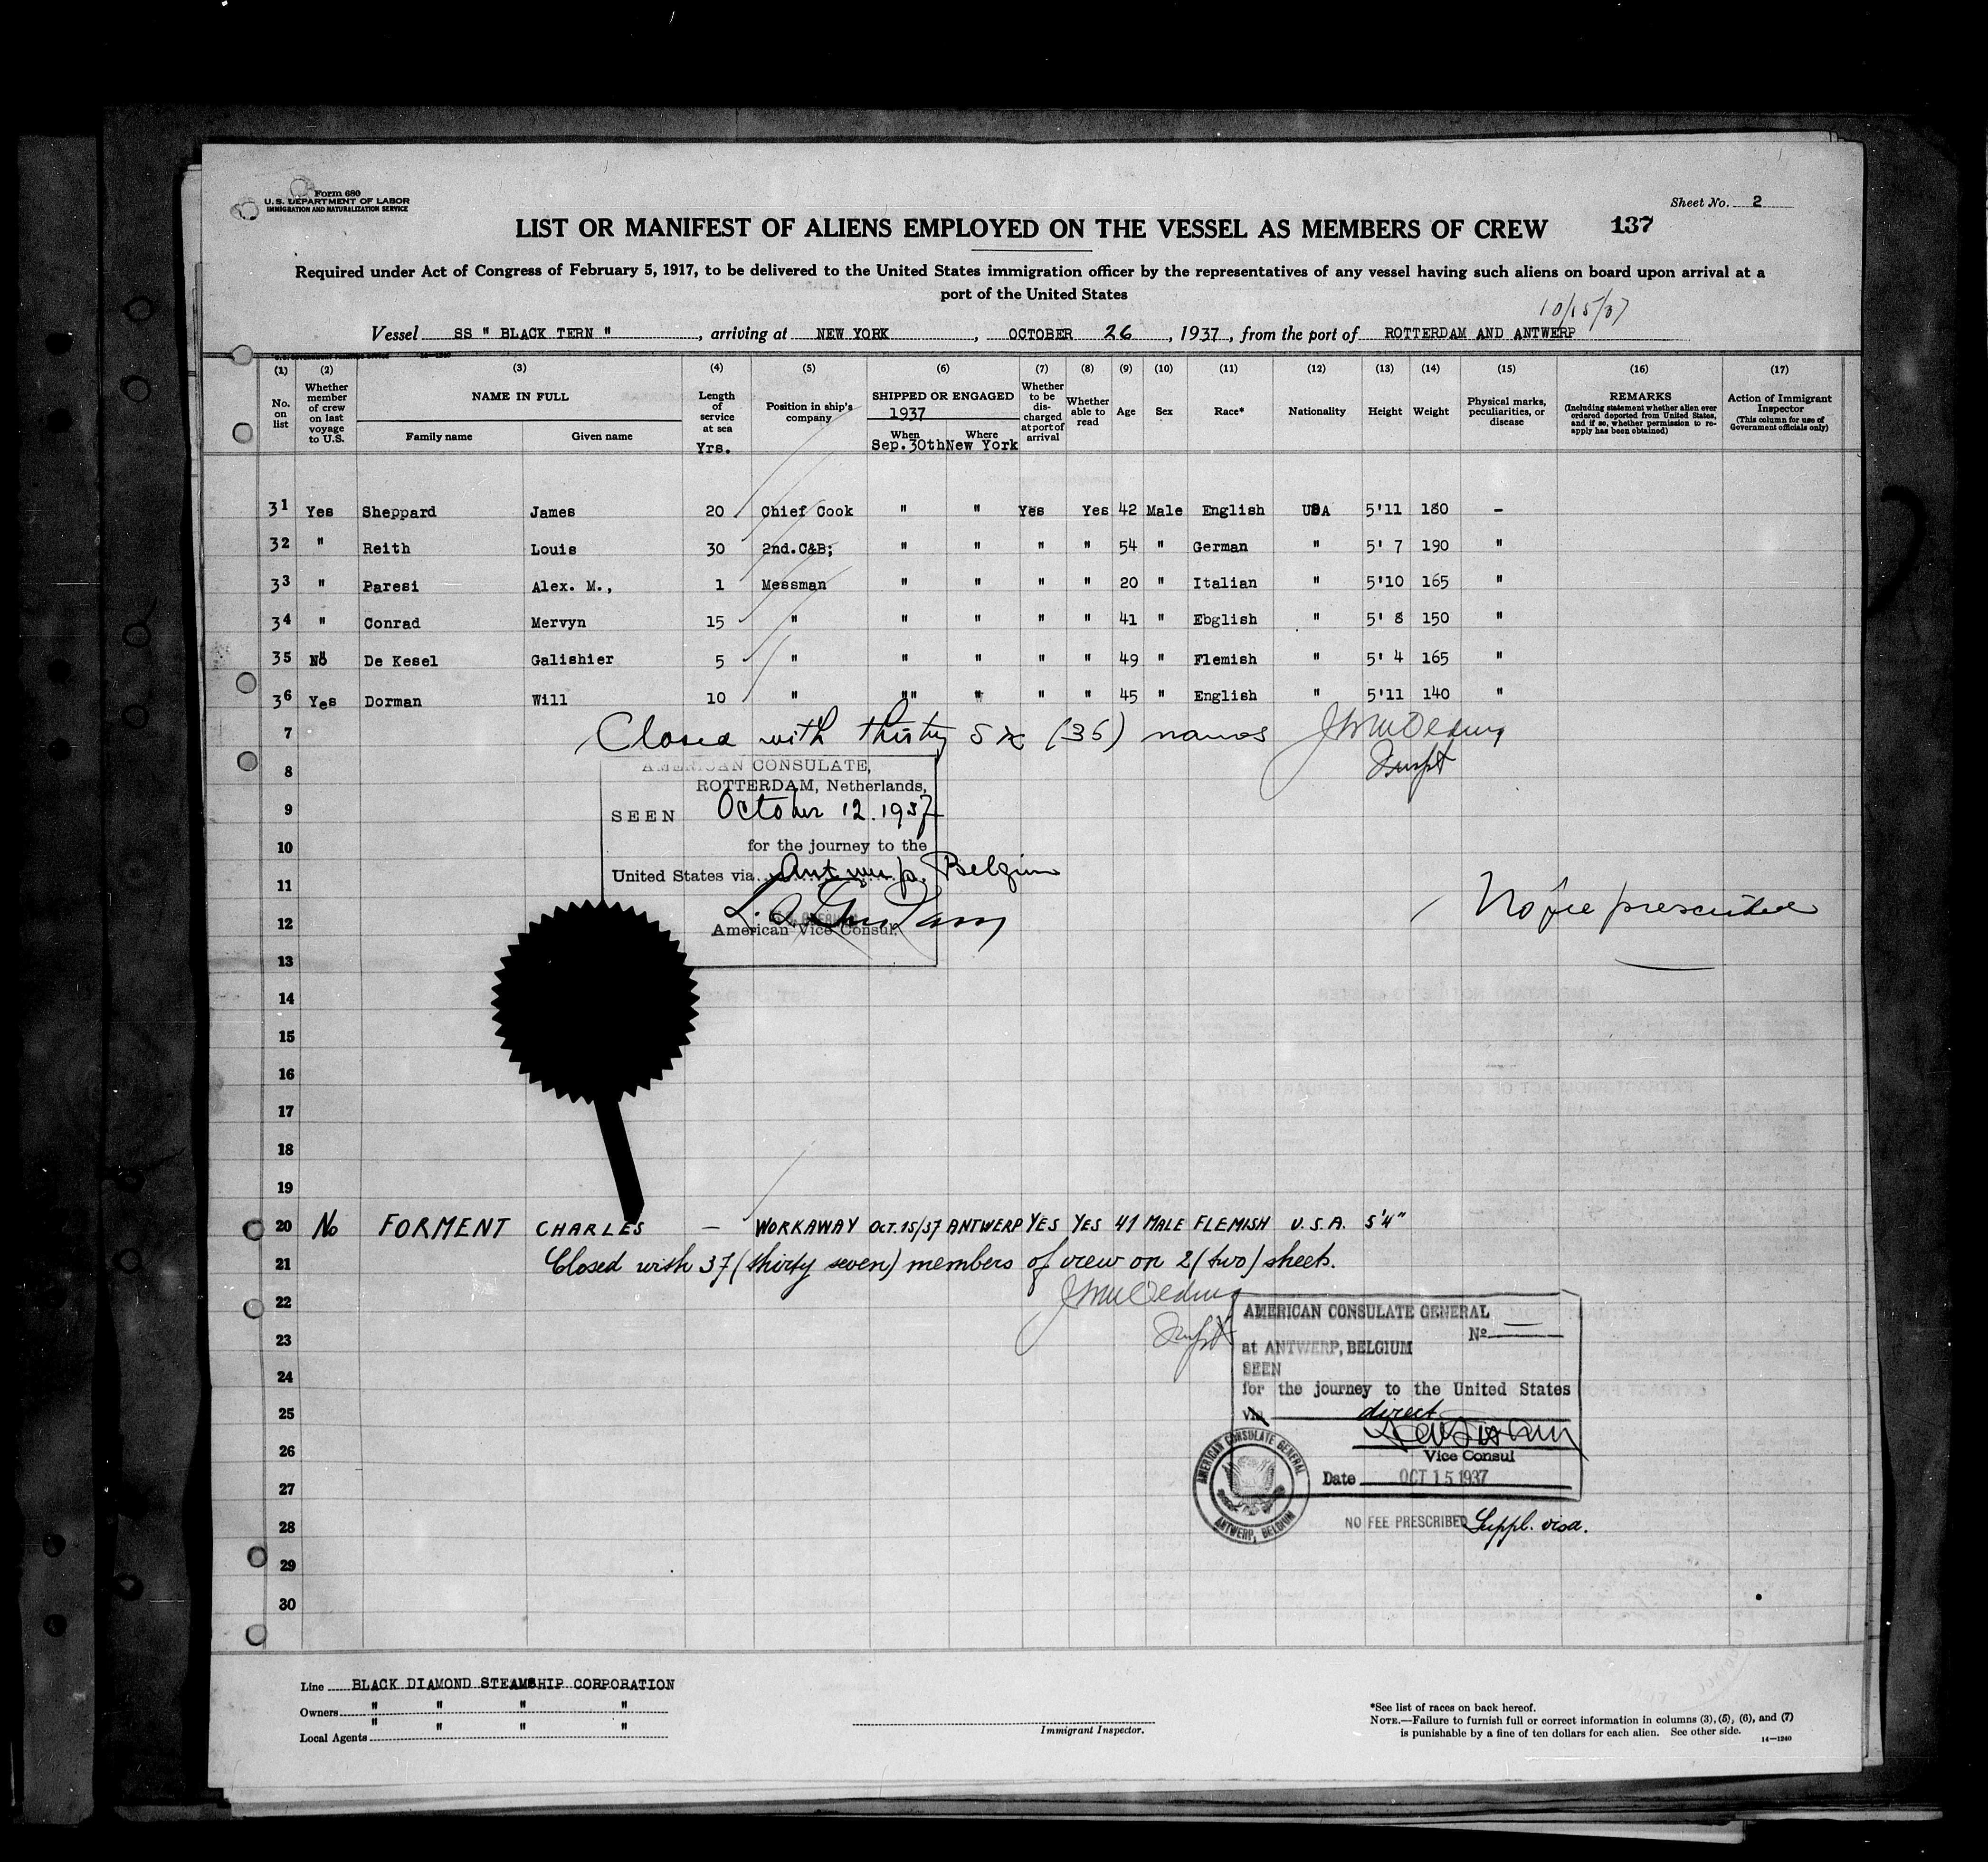 Form 680
U. S. DEPARTMENT OF LABOR
IMMIGRATION AND NATURALIZATION SERVICE
Sheet No. 2
LIST OR MANIFEST OF ALIENS EMPLOYED ON THE VESSEL AS MEMBERS OF CREW 137
Required under Act of Congress of February 5, 1917, to be delivered to the United States immigration officer by the representatives of any vessel having such aliens on board upon arrival at a
port of the United States
10/15/37
Vessel SS " BLACK TERN " , arriving at NEW YORK , OCTOBER 26 , 1937 , from the port of ROTTERDAM AND ANTWERP
(1) (2) (3) (4) (5) (6) (7) (8) (9) (10) (11) (12) (13) (14) (15) (16) (17)
No. on list
Whether member of crew on last voyage to U.S.
NAME IN FULL
Family name Given name
Length of service at sea
Yrs.
Position in ship's company
SHIPPED OR ENGAGED
1937
When Where
Sep.30th New York
Whether to be discharged at port of arrival
Whether able to read
Age
Sex
Race*
Nationality
Height
Weight
Physical marks, peculiarities, or disease
REMARKS
(Including statement whether alien ever ordered deported from United States, and if so, whether permission to reapply has been obtained)
Action of Immigrant Inspector
(This column for use of Government officials only)
31 Yes Sheppard James 20 Chief Cook " " Yes Yes 42 Male English USA 5'11 180 -
32 " Reith Louis 30 2nd.C&B; " " " " 54 " German " 5' 7 190 "
33 " Paresi Alex. M., 1 Messman " " " " 20 " Italian " 5'10 165 "
34 " Conrad Mervyn 15 " " " " " 41 " Ebglish " 5' 8 150 "
35 No De Kesel Galishier 5 " " " " " 49 " Flemish " 5' 4 165 "
36 Yes Dorman Will 10 " "" " " " 45 " English " 5'11 140 "
7 Closed with thirty six (36) names
8 AMERICAN CONSULATE,
ROTTERDAM, Netherlands,
9 SEEN October 12. 1937
10 for the journey to the
11 United States via Antwerp, Belgium
12 No fee prescribed
American Vice Consul.
13
14
15
16
17
18
19
20 No FORMENT CHARLES — WORKAWAY OCT.15/37 ANTWERP YES YES 41 MALE FLEMISH U.S.A. 5'4"
21 Closed with 37 (thirty seven) members of crew on 2 (two) sheets.
22
23
24
25
26
27
28
29
30
AMERICAN CONSULATE GENERAL
No —
at ANTWERP, BELGIUM
SEEN
for the journey to the United States
via direct
Vice Consul
Date OCT 15 1937
AMERICAN CONSULATE GENERAL
ANTWERP, BELGIUM
NO FEE PRESCRIBED Suppl. visa.
Line BLACK DIAMOND STEAMSHIP CORPORATION
Owners " " " "
Local Agents " " " "
Immigrant Inspector.
*See list of races on back hereof.
NOTE.—Failure to furnish full or correct information in columns (3), (5), (6), and (7)
is punishable by a fine of ten dollars for each alien. See other side.
14—1240